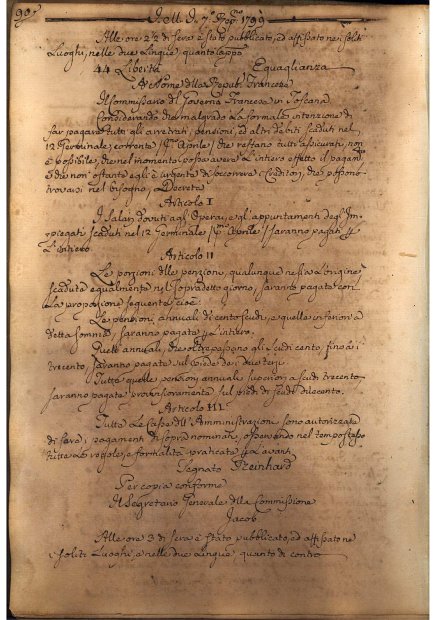 90.
Alle ore 2½ di sera è stato pubblicato, ed affissato nei soliti
Luoghi, nelle due Lingue quanto appo
44 Libertà Eguaglianza
A nome della Repub. Francese
Il Commissario del Governo Francese in Toscana
Considerando che malgrado la formale intenzione di
far pagare tutti gli arretrati, pensioni, ed altri debiti scaduti nel
12 Germinale, corrente /pmo Aprile/ che restano tutti assicurati, non
è possibile, che nel momento possa avere l'intiero effetto il pagam.
e che non ostante egli è urgente di soccorrere i Creditori, che possono
trovarsi nel bisogno, Decreta
Articolo I
I Salari dovuti agli Operai, e gl'appuntamenti degl'Im=
piegati scaduti nel 12 Germinale /pmo Aprile/ saranno pagati p
L'intiero.
Articolo II
Le porzioni delle pensioni, qualunque ne sia l'origine
scadute egualmente nel sopradetto giorno, saranno pagate con
la proporsione seguente cioè:
Le pensioni annuali di cento scudi, e quelle inferiori a
detta somma, saranno pagate p l'intiero.
Quelle annuali, che oltrepassano gli scudi cento, fino ai
trecento, saranno pagate sul piede dei due terzi.
Tutte quelle pensioni annuali superiori a scudi trecento
saranno pagate provisoriamente sul piede di scudi duecento.
Articolo III.
Tutte le Casse dell'Amministrazioni sono autorizzate
di fare i pagamenti di sopra nominati, osservando nel tempo stesso
tutte le regole, e formalità praticate p l'avanti.
Segnato Reinhard
Per copia conforme
Il Segretario Generale della Commissione
Jacob
Alle ore 3 di sera è stato pubblicato, ed affissato ne
i soliti Luoghi, e nelle due Lingue quanto di contro